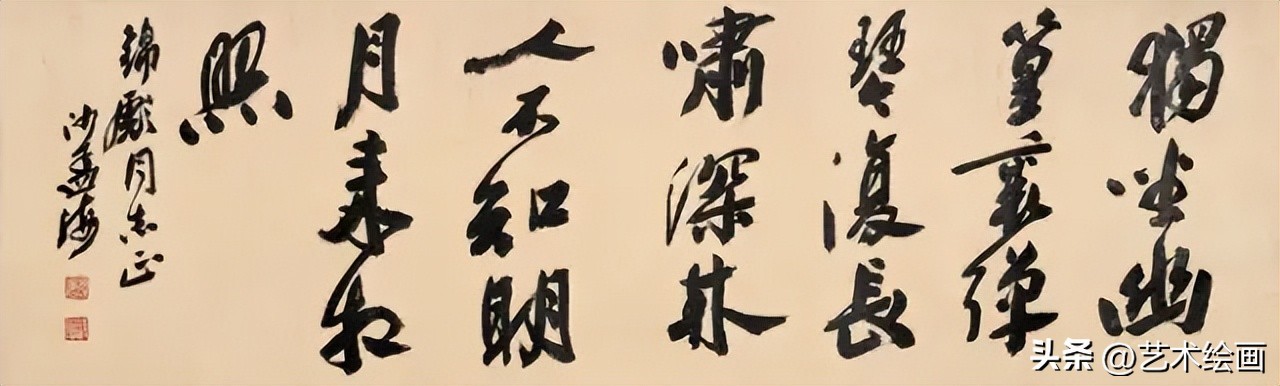 獨坐幽
篁裏彈
琴復長
嘯深林
人不知明
月来相
照
錦同志正
沙孟海
头条 @艺术绘画